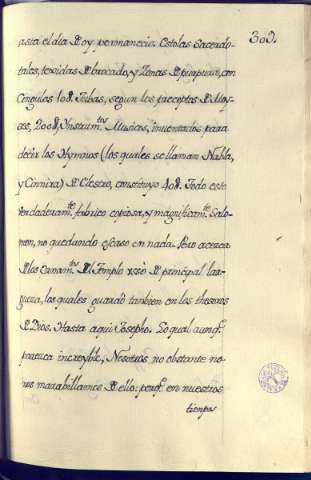 303.
asta el dia D oy permanecia. Estolas Sacerdo-
tales, texidas D brocado, y Zonas D purpura, con
Cingulos 10 d. Tubas, segun los preceptos D Moy-
ses, 200 d. Ynstrum.tos Musicos, inventados para
decir los Hymnos (los quales se llaman Nabla,
y Cinnira) D Electro, constituyo 40 d. Todo esto
verdaderam.te fabrico copiosa, y magnificam.te Salo-
mon, no quedando escaso en nada. Pero acerca
D los Ornam.tos Dl Templo usò D principal lar-
gueza, los quales guardò tambien en los thesoros
D Dios. Hasta aqui Josepho. Lo qual aunq.
paresca increyble, Nosotros no obstante no
nos marabillamos D ello: porq. en nuestros
tiempos